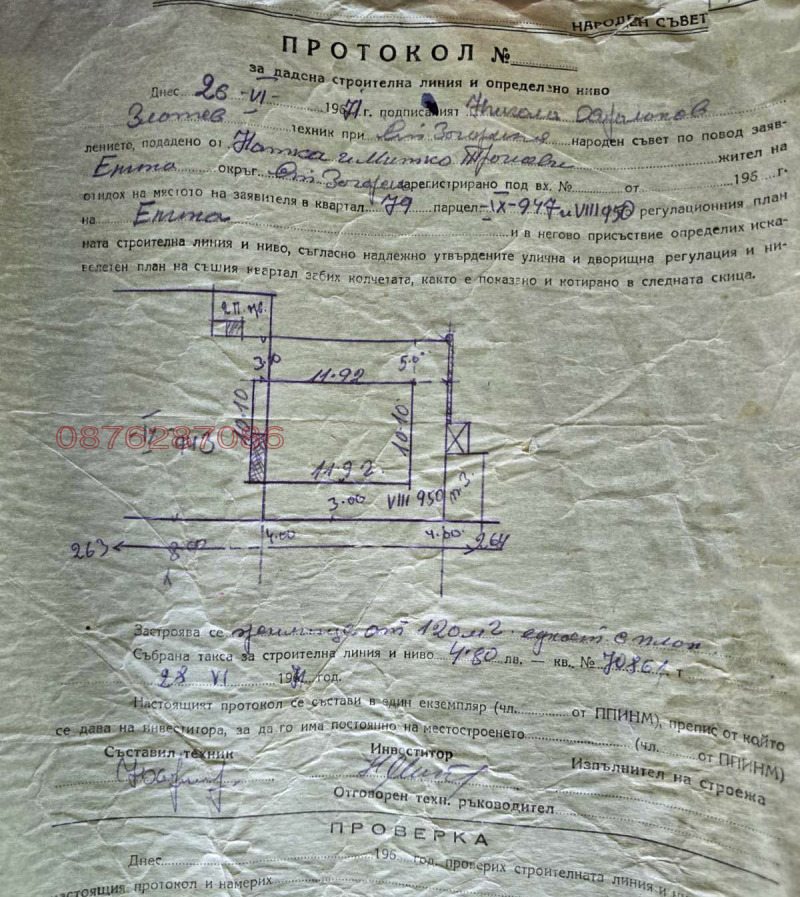 НАРОДЕН СЪВЕТ
ПРОТОКОЛ №
за дадена строителна линия и определено ниво
Днес 26 -VI- 1971 г. подписаният Никола
Златев техник при Ст. Загорския народен съвет по повод заяв-
лението, подадено от Натка и Митко жител на
Енина окръг Ст. Загора регистрирано под вх. № от 196 г.
отидох на мястото на заявителя в квартал 79 парцел IX-947 и VIII 950 регулационния план
на Енина и в негово присъствие определих иска-
ната строителна линия и ниво, съгласно надлежно утвърдените улична и дворищна регулация и ни-
велетен план на същия квартал забих колчетата, както е показано и котирано в следната скица.
2 П.
3.00 5.0
11.92
10.10 10.10
0876287086
11.92
3.00 VIII 950
4.00 4.00
263 8.00 264
Застроява се жилище от 120 м² едноет. с плоч
Събрана такса за строителна линия и ниво 4.80 лв. — кв. № 70861 т
28 VI 1971 год.
Настоящият протокол се състави в един екземпляр (чл. от ППИНМ), препис от който
се дава на инвеститора, за да го има постоянно на местостроенето (чл. от ППИНМ)
Съставил техник Инвеститор Изпълнител на строежа
Отговорен техн. ръководител
ПРОВЕРКА
Днес 196 год. проверих строителната линия и
настоящия протокол и намерих